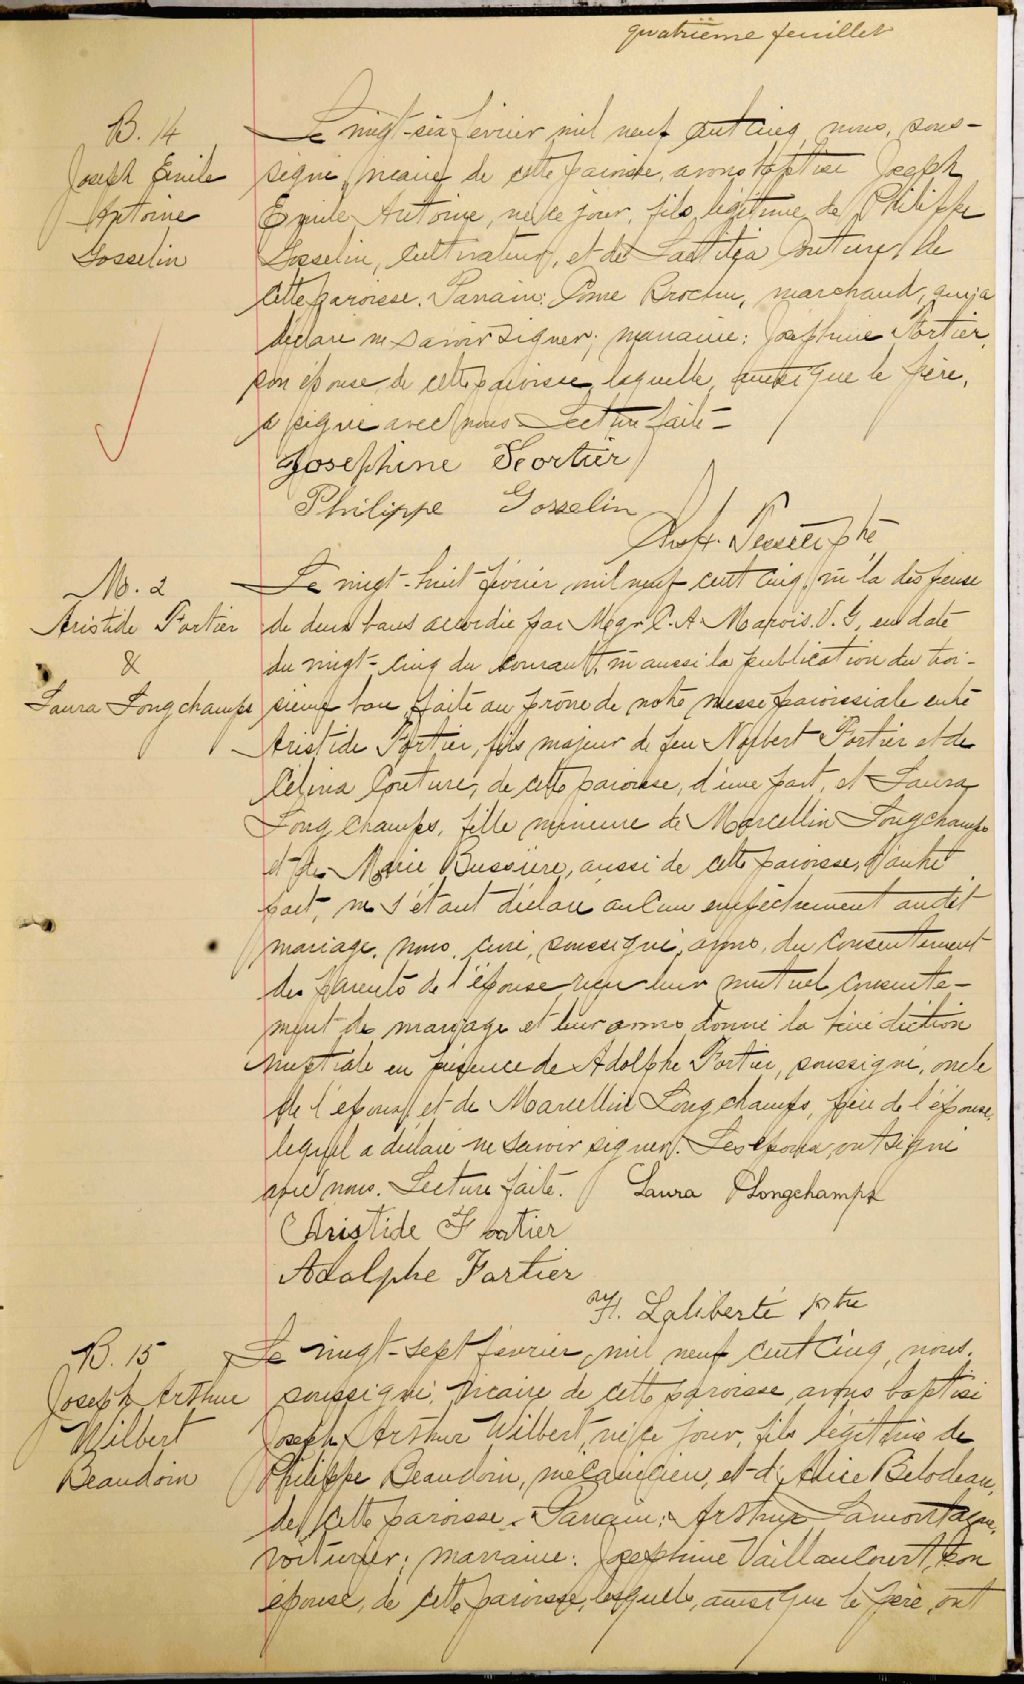 quatrième feuillet
B. 14
Joseph Emile
Antoine
Gosselin
Le vingt-six février mil neuf cent cinq, nous, sous-
signé, vicaire de cette paroisse, avons baptisé Joseph
Emile Antoine, né ce jour, fils légitime de Philippe
Gosselin, cultivateur, et de Laetitia Couture, de
cette paroisse. Parrain: Come Brochu, marchand, qui a
déclaré ne savoir signer; marraine: Joséphine Fortier,
son épouse de cette paroisse, laquelle, ainsi que le père,
a signé avec nous. Lecture faite -
Josephine Fortier
Philippe Gosselin
Tessier ptre
M. 2
Aristide Fortier
&
Laura Longchamps
Le vingt-huit février mil neuf cent cinq, vu la dispense
de deux bans accordée par Mgr. C. A. Marois. V. G, en date
du vingt-cinq du courant, vu aussi la publication du troi-
sième ban faite au prône de notre messe paroissiale entre
Aristide Fortier, fils majeur de feu Norbert Fortier et de
Célina Couture, de cette paroisse, d'une part, et Laura
Longchamps, fille mineure de Marcellin Longchamps
et de Marie Bussière, aussi de cette paroisse, d'autre
part, ne s'étant déclaré aucun empêchement au dit
mariage, nous, curé, soussigné, avons, du consentement
des parents de l'épouse reçu leur mutuel consente-
ment de mariage et leur avons donné la bénédiction
nuptiale en présence de Adolphe Fortier, soussigné, oncle
de l'époux, et de Marcellin Longchamps, père de l'épouse,
lequel a déclaré ne savoir signer. Les époux ont signé
avec nous. Lecture faite. Laura Longchamps
Aristide Fortier
Adolphe Fortier
H. Laliberté ptre
B. 15
Joseph Arthur
Wilbert
Beaudoin
Le vingt-sept février, mil neuf cent cinq, nous,
soussigné, vicaire de cette paroisse, avons baptisé
Joseph Arthur Wilbert, né ce jour, fils légitime de
Philippe Beaudoin, mécanicien, et d'Alice Bilodeau,
de cette paroisse. Parrain: Arthur Lamontagne,
voiturier; marraine: Josephine Vaillancourt, son
épouse, de cette paroisse, lesquels, ainsi que le père, ont